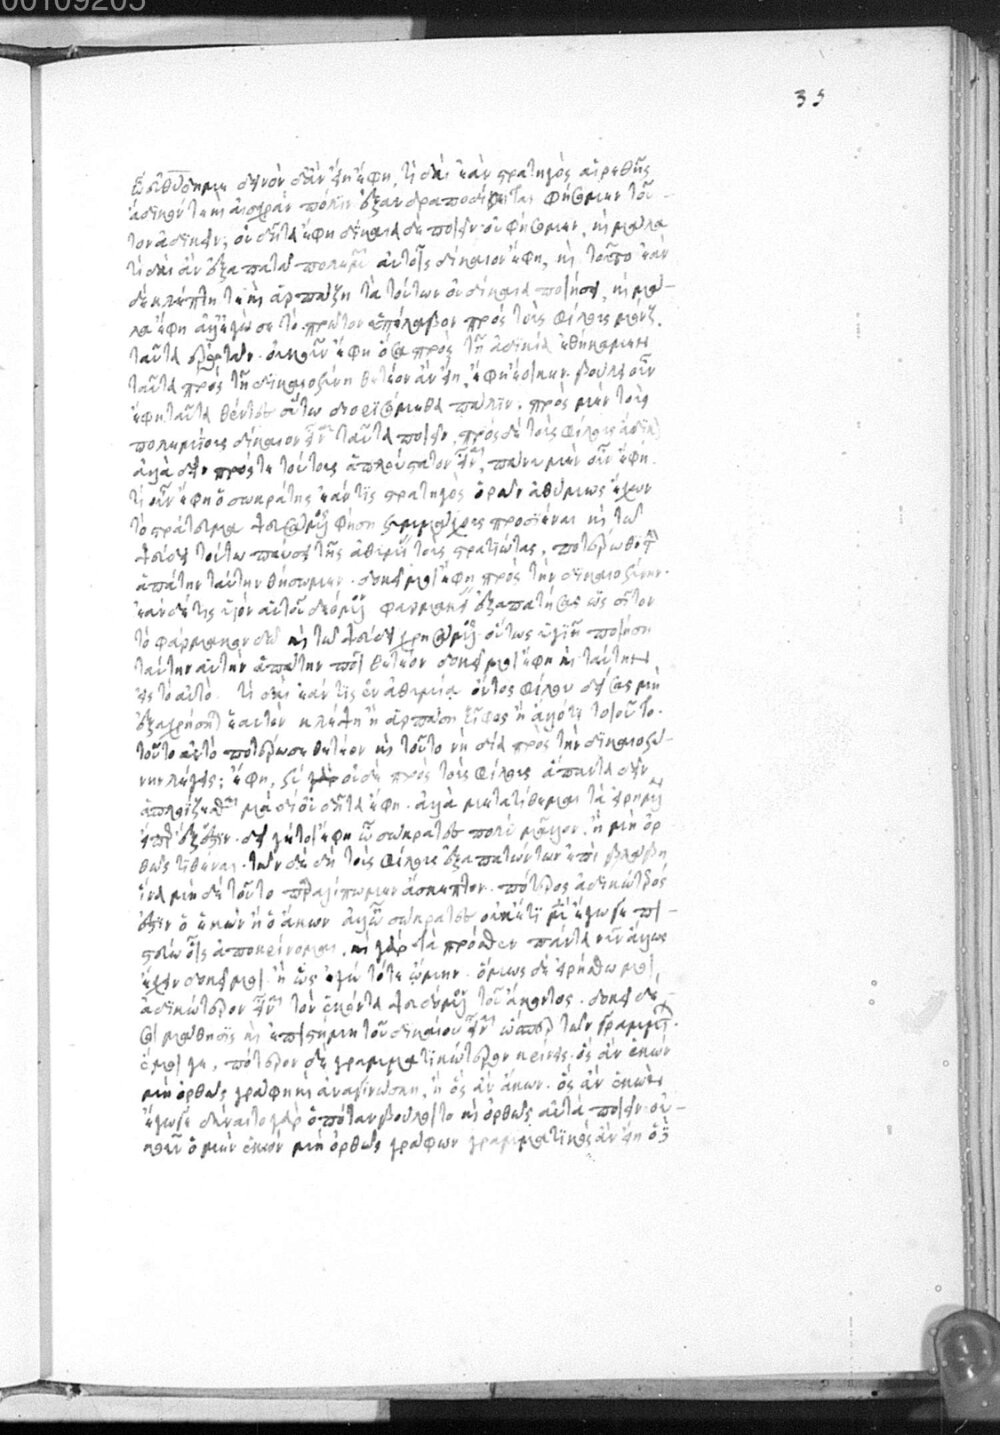 00109205
35
ὦ εὐθύδημε δεινὸν δ' ἂν εἴη ἔφη, τί δαὶ ἐάν στρατηγὸς αἱρεθεὶς
ἄδικόν τε καὶ ἐχθρὰν πόλιν ἐξανδραποδίζηται φήσομεν τοῦ-
τον ἀδικεῖν; οὐ δῆτα ἔφη δίκαια δὲ ποιεῖν οὐ φήσομεν, καὶ μάλα
τί δαὶ ἂν ἐξαπατᾷ πολεμῶν αὐτοῖς δίκαιον ἔφη, καὶ τοῦτο ἐὰν
δὲ κλέπτῃ τε καὶ ἁρπάζῃ τὰ τούτων οὐ δίκαια ποιήσει, καὶ μά-
λα ἔφη ἀλλ' ἐγώ σε τὸ πρῶτον ὑπέλαβον πρὸς τοὺς φίλους μόνον
ταῦτα ἐρωτᾶν. οὐκοῦν ἔφη ὅσα πρὸς τῇ ἀδικίᾳ ἐθήκαμεν
ταῦτα πρὸς τῇ δικαιοσύνῃ θετέον ἂν εἴη, ἔφη ἔοικεν. βούλει οὖν
ἔφη ταῦτα θέντες οὕτω διορισώμεθα πάλιν. πρὸς μὲν τοὺς
πολεμίους δίκαιον εἶναι ταῦτα ποιεῖν, πρὸς δὲ τοὺς φίλους ἄδικον
ἀλλὰ δεῖν πρός γε τούτους ἁπλούστατον εἶναι, πάνυ μὲν οὖν ἔφη.
τί οὖν ἔφη ὁ σωκράτης ἐάν τις στρατηγὸς ὁρῶν ἀθύμως ἔχον
τὸ στράτευμα ψευσάμενος φήσῃ συμμάχους προσιέναι καὶ τῷ
ψεύδει τούτῳ παύσῃ τῆς ἀθυμίας τοὺς στρατιώτας, ποτέρωθι τὴν
ἀπάτην ταύτην θήσομεν. δοκεῖ μοι ἔφη πρὸς τὴν δικαιοσύνην.
ἐὰν δέ τις υἱὸν αὑτοῦ δεόμενον φαρμακείας ἐξαπατήσας ὡς σιτίον
τὸ φάρμακον δῷ καὶ τῷ ψεύδει χρησάμενος οὕτως ὑγιᾶ ποιήσῃ
ταύτην αὖ τὴν ἀπάτην ποῖ θετέον δοκεῖ μοι ἔφη καὶ ταύτην
εἰς τὸ αὐτό. τί δαὶ ἐάν τις ἐν ἀθυμίᾳ ὄντος φίλου δείσας μὴ
διαχρήσηται ἑαυτὸν κλέψῃ ἢ ἁρπάσῃ ξίφος ἢ ἄλλό τι τοιοῦτο.
τοῦτο αὖ ποτέρωσε θετέον καὶ τοῦτο νὴ δία πρὸς τὴν δικαιοσύ-
νην λέγεις; ἔφη, σὺ οὐδὲ πρὸς τοὺς φίλους ἅπαντα δεῖν
ἁπλοΐζεσθαι μὰ δί' οὐ δῆτα ἔφη. ἀλλὰ μετατίθεμαι τὰ εἰρημένα
εἴπερ ἔξεστιν. δεῖ γέ τοι ἔφη ὦ σώκρατες πολὺ μᾶλλον. ἢ μὴ ὀρ
θῶς τιθέναι. τῶν δὲ δὴ τοὺς φίλους ἐξαπατώντων ἐπὶ βλάβῃ
ἵνα μὴ δὲ τοῦτο παραλίπωμεν ἄσκεπτον. πότερος ἀδικώτερός
ἐστιν ὁ ἑκὼν ἢ ὁ ἄκων ἀλλ' ὦ σώκρατες οὐκέτι μὲν ἔγωγε πι-
στεύω οἷς ἀποκρίνομαι. καὶ γὰρ τὰ πρόσθεν πάντα νῦν ἄλλως
ἔχειν δοκεῖ μοι ἢ ὡς ἐγὼ τότε ᾤμην. ὅμως δὲ εἰρήσθω μοι,
ἀδικώτερον εἶναι τὸν ἑκόντα ψευδόμενον τοῦ ἄκοντος. δοκεῖ δέ
σοι μάθησις καὶ ἐπιστήμη τοῦ δικαίου εἶναι ὥσπερ τῶν γραμμάτων.
ἔμοι γε, πότερον δὲ γραμματικώτερον κρίνεις. ὃς ἂν ἑκὼν
μὴ ὀρθῶς γράφῃ καὶ ἀναγινώσκῃ, ἢ ὃς ἂν ἄκων. ὃς ἂν ἑκὼν
ἔγωγε δύναιτο γὰρ ὁπόταν βούλοιτο καὶ ὀρθῶς αὐτὰ ποιεῖν οὐ-
κοῦν ὁ μὲν ἑκὼν μὴ ὀρθῶς γράφων γραμματικὸς ἂν εἴη ὁ δὲ